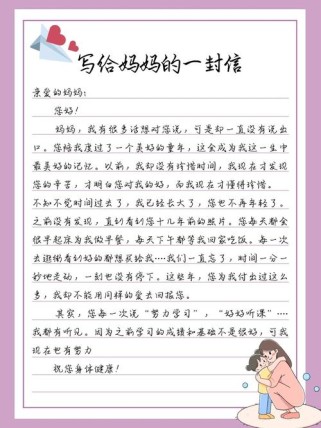 写给妈妈的一封信
亲爱的妈妈：
您好！
妈妈，我有很多话想对您说，可是却一直没有说出
口。您陪我度过了一个美好的童年，这会成为我这一生中
最美好的记忆。以前，我却没有珍惜时间，我现在才发现
您的辛苦，才明白您对我的好，而我现在才懂得珍惜。
不知不觉时间过去了，我已经长大了，您也不再年轻了。
之前没有发现，直到看到您十几年前的照片。您每天都会
很早起床为我做早餐，每天下午都等我回家吃饭。每一次
去逛街看到好的都想买给我……我们一直忘了，时间一分一
秒地走动，一刻也没有停下。这些年，您为我付出过这么
多，我却不能用同样的爱去回报您。
其实，您每一次说“努力学习”，“好好听课”……
我都有听见。因为之前学习的成绩和基础不是很好，可我
现在也有努力
祝您身体健康！